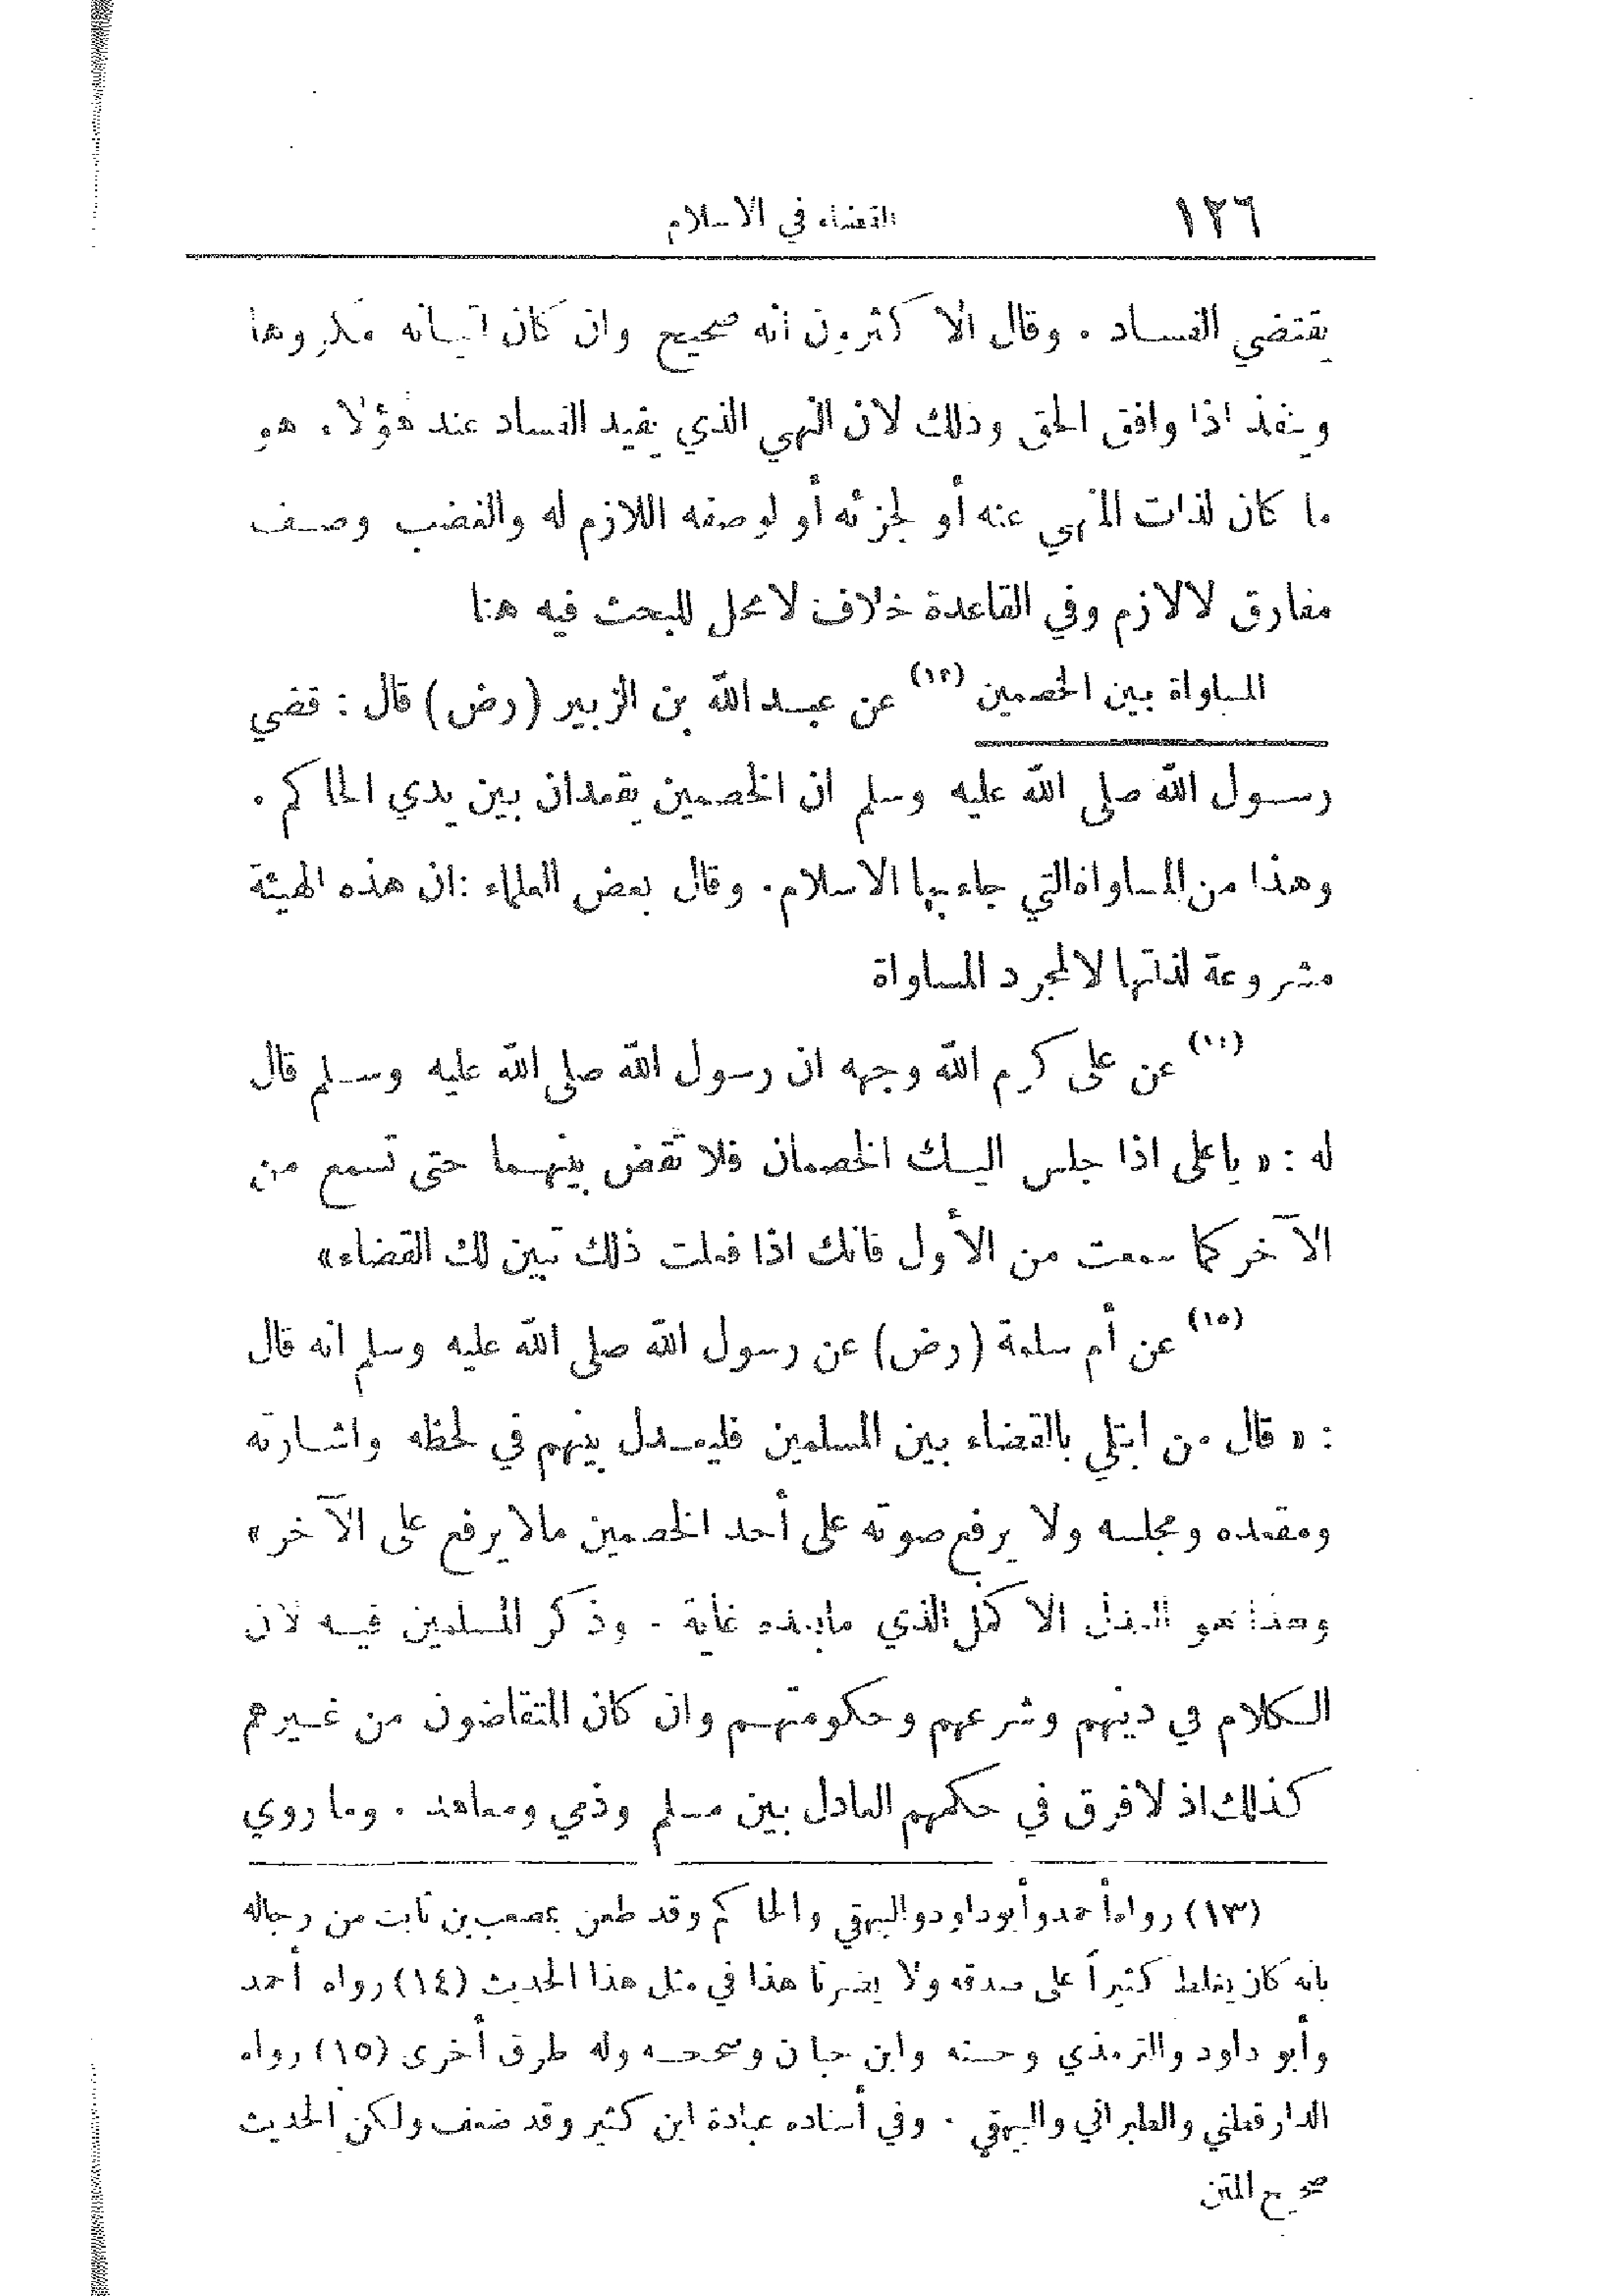 ١٢٦
القضاء في الاسلام
يقتضي الفساد . وقال الاكثرون انه صحيح وان كان اتيانه مكروها
وينفذ اذا وافق الحق وذلك لان النهي الذي يفيد الفساد عند هؤلاء هو
ما كان لذات المنهي عنه أو لجزئه أو لوصفه اللازم له والغضب وصف
مفارق لا لازم وفي القاعدة خلاف لا محل للبحث فيه هنا
المساواة بين الخصمين (١٣) عن عبد الله بن الزبير (رض) قال : قضى
رسول الله صلى الله عليه وسلم ان الخصمين يقعدان بين يدي الحاكم .
وهذا من المساواة التي جاء بها الاسلام . وقال بعض العلماء : ان هذه الهيئة
مشروعة لذاتها لا لمجرد المساواة
(١٤) عن على كرم الله وجهه ان رسول الله صلى الله عليه وسلم قال
له : « يا على اذا جلس اليك الخصمان فلا تقض بينهما حتى تسمع من
الآخر كما سمعت من الأول فانك اذا فعلت ذلك تبين لك القضاء»
(١٥) عن أم سلمة (رض) عن رسول الله صلى الله عليه وسلم انه قال
: « قال من ابتلي بالقضاء بين المسلمين فليعدل بينهم في لحظه واشارته
ومقعده ومجلسه ولا يرفع صوته على أحد الخصمين مالا يرفع على الآخر »
وهذا هو العدل الاكمل الذي مابعده غاية - وذكر المسلمين فيه لان
الكلام في دينهم وشرعهم وحكومتهم وان كان المتقاضون من غيرهم
كذلك اذ لا فرق في حكمهم العادل بين مسلم وذمي ومعاهد . وما روي
(١٣) رواه أحمد وأبو داود والبيهقي والحاكم وقد طعن بمصعب بن ثابت من رجاله
بانه كان يغلط كثيراً على صدقه ولا يضرنا هذا في مثل هذا الحديث (١٤) رواه أحمد
وأبو داود والترمذي وحسنه وابن حبان وصححه وله طرق أخرى (١٥) رواه
الدارقطني والطبراني والبيهقي . وفي أسناده عبادة ابن كثير وقد ضعف ولكن الحديث
صحيح المتن